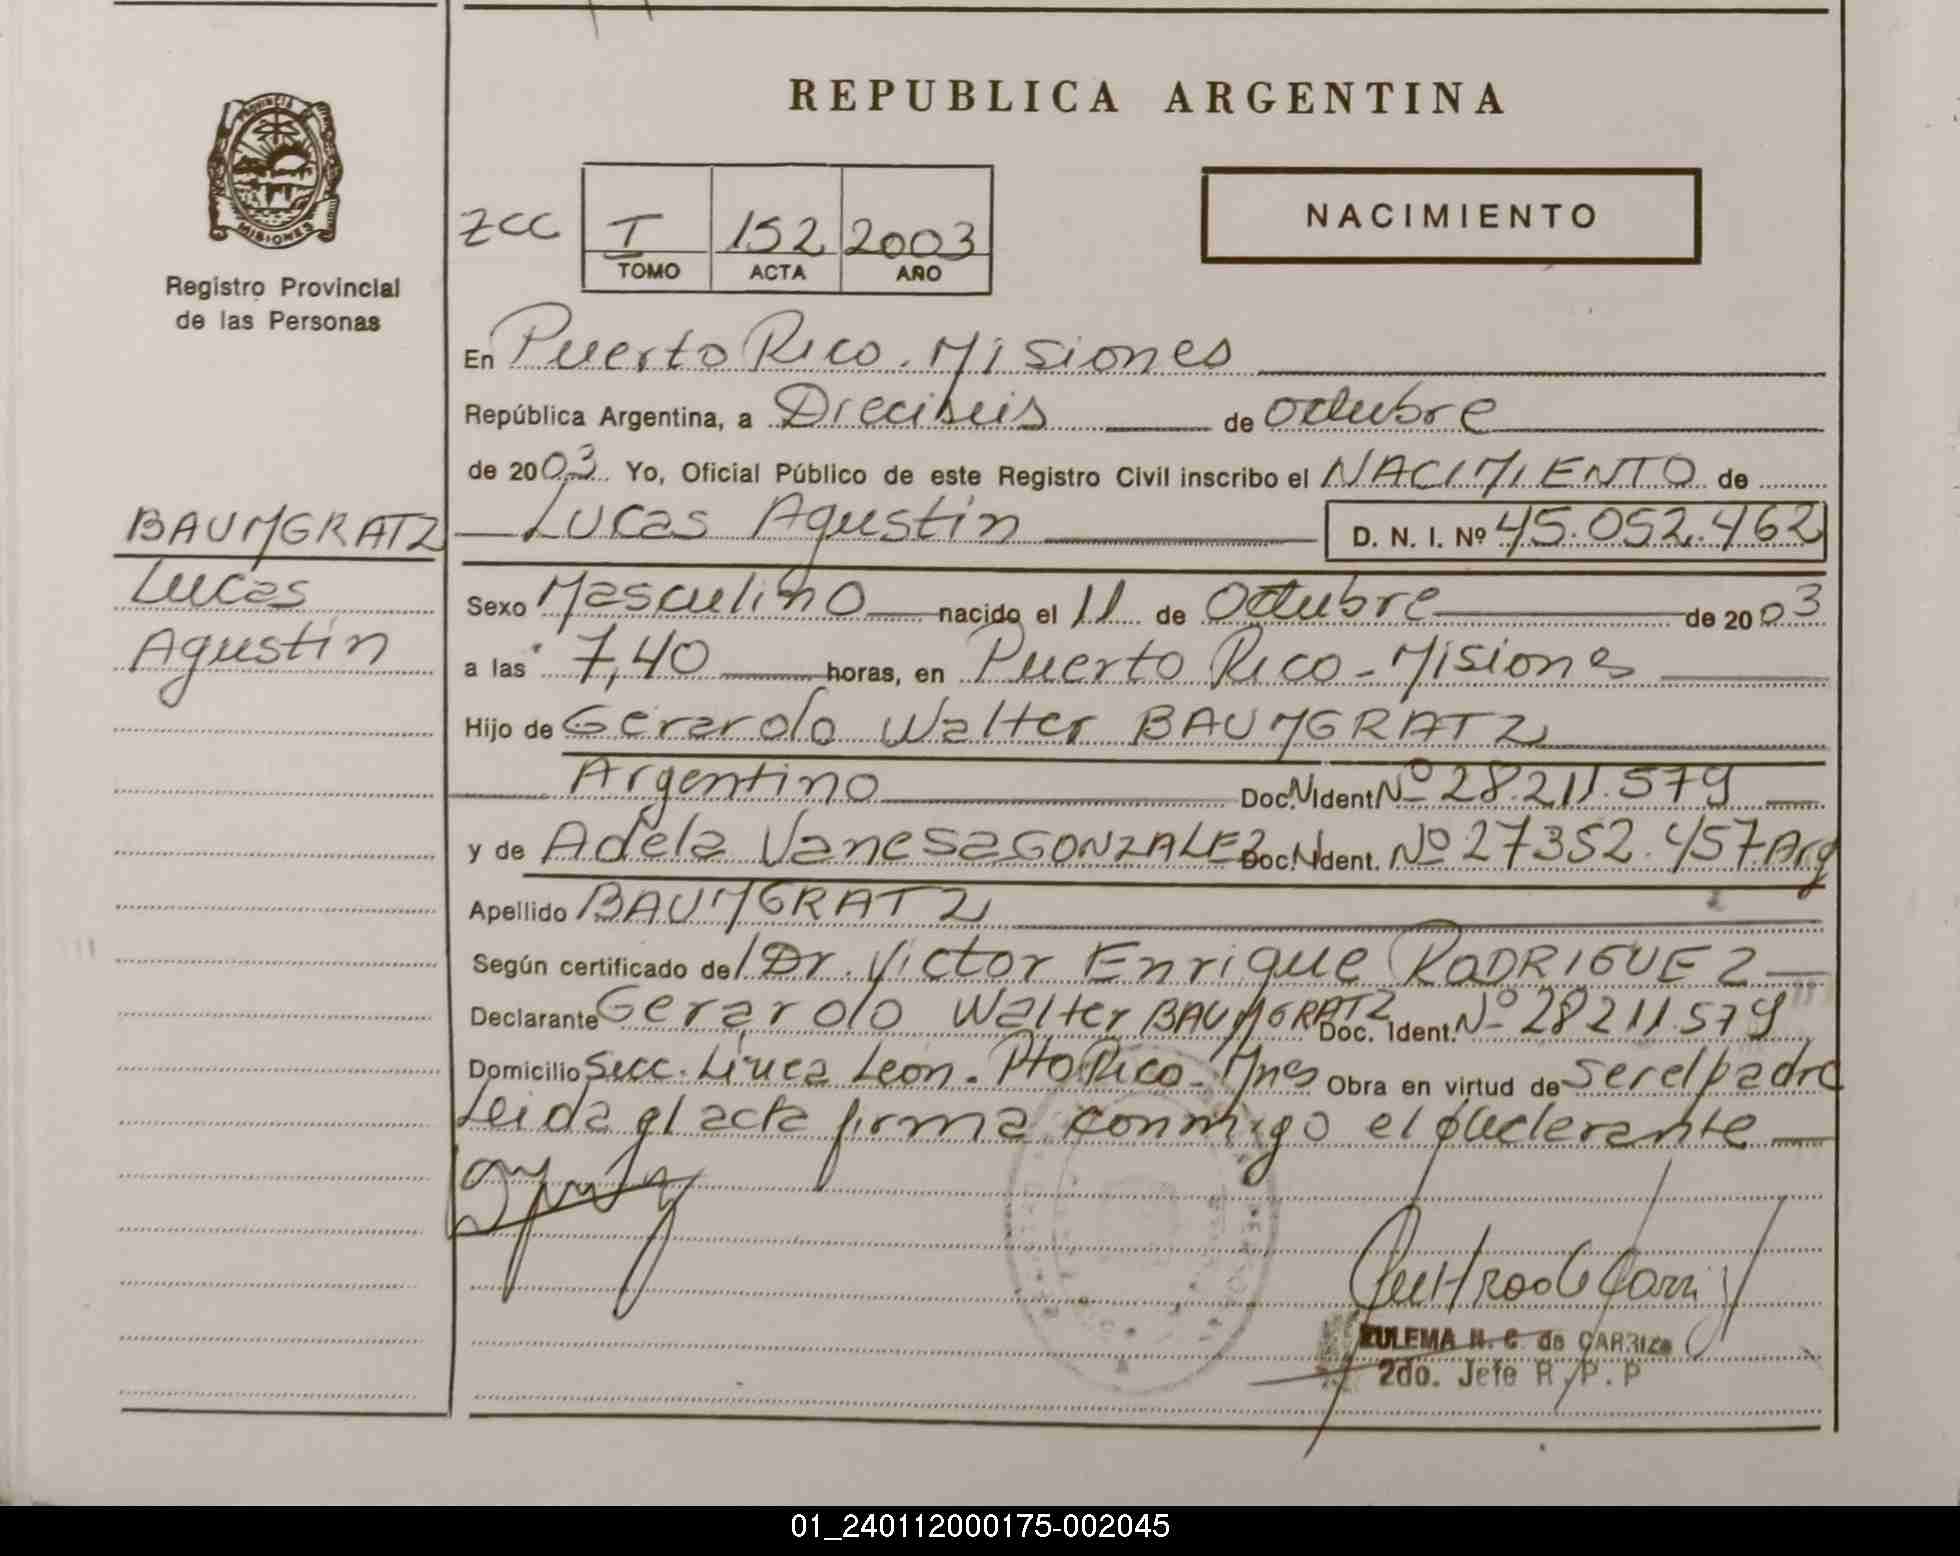 REPUBLICA ARGENTINA
PROVINCIA
MISIONES
Registro Provincial
de las Personas
ZCC
T 152 2003
TOMO ACTA AÑO
NACIMIENTO
En Puerto Rico. Misiones
República Argentina, a Dieciseis de octubre
de 2003 Yo, Oficial Público de este Registro Civil inscribo el NACIMIENTO de
Lucas Agustin D. N. I. Nº 45.052.462
BAUMGRATZ
Lucas
Agustin
Sexo Masculino nacido el 11 de Octubre de 2003
a las 7,40 horas, en Puerto Rico - Misiones
Hijo de Gerardo Walter BAUMGRATZ
Argentino Doc. N Ident Nº 28.211.579
y de Adela Vanesa GONZALEZ Doc. N Ident. Nº 27352.457 Arg
Apellido BAUMGRATZ
Según certificado del Dr. Victor Enrique RODRIGUEZ
Declarante Gerardo Walter BAUMGRATZ Doc. Ident. Nº 28211.579
Domicilio Secc. Linea Leon. Pto Rico - Mnes Obra en virtud de ser el padre
Leida el acta firma conmigo el declarante
ZULEMA N. C. de CARRIZO
2do. Jefe R. P. P
01_240112000175-002045